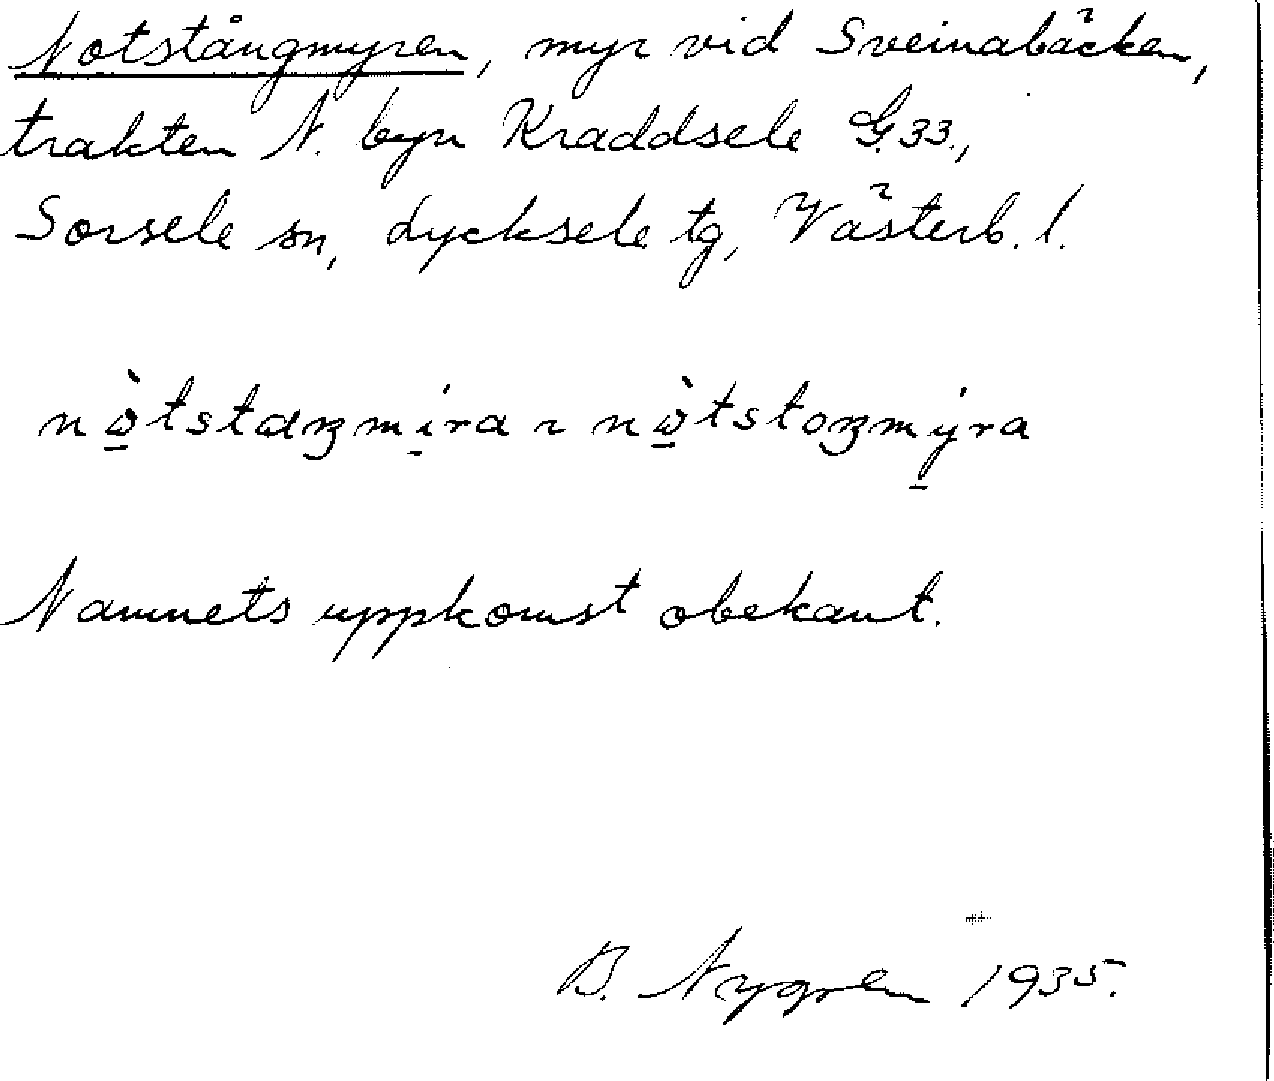 Notstångmyren, myr vid Sveinabäcken,
trakten N. byn Kraddsele G.33.,
Sorsele sn, Lycksele tg, Västerb. l.
nò̱tstaŋmi̱ra ~ nò̱tstoŋmy̱ra
Namnets uppkomst obekant.
B. Nygren 1935.